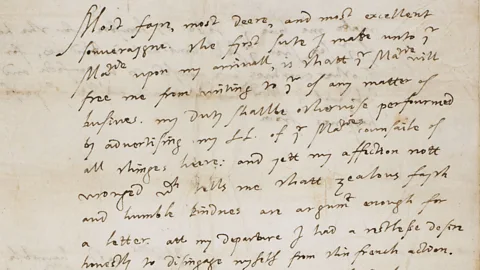 Most faire, most deere, and most excellent
souveraigne. the first sute I make unto yr
Matie upon my arrivall, is thatt yr Matie will
free me from writing to yr of any matter of
busines. my duty shalbe otherwise perfourmed
by advertising my LL. of yr Maties counsaile of
all thinges heere: and yett my affection nott
wronged wch tells me thatt zealous fayth
and humble kindnes are argumt enough for
a letter. att my departure I had a restlesse desire
honestly to disingage myself from this french action.